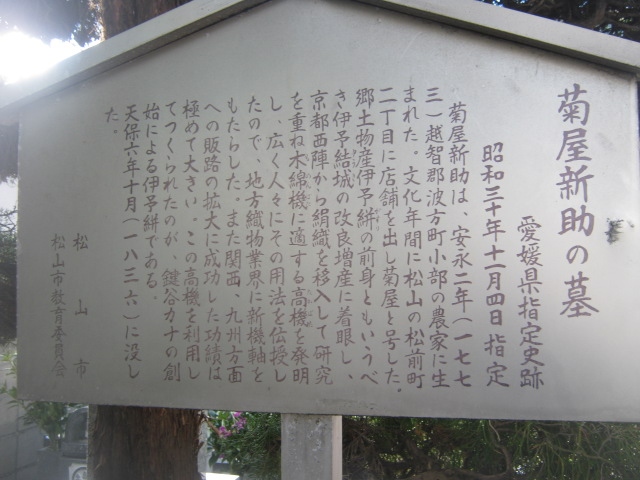 菊屋新助の墓
愛媛県指定史跡
昭和三十年十一月四日指定
菊屋新助は、安永二年（一七七
三）越智郡波方町小部の農家に生
まれた。文化年間に松山の松前町
二丁目に店舗を出し菊屋と号した。
郷土物産伊予絣の前身ともいうべ
き伊予結城の改良増産に着眼し、
京都西陣から絹織を移入して研究
を重ね木綿機に適する高機を発明
し、広く人々にその用法を伝授し
たので、地方織物業界に新機軸を
もたらした。また関西、九州方面
への販路の拡大に成功した功績は
極めて大きい。この高機を利用し
てつくられたのが、鍵谷カナの創
始による伊予絣である。
天保六年十月（一八三六）に没し
た。
松山市
松山市教育委員会